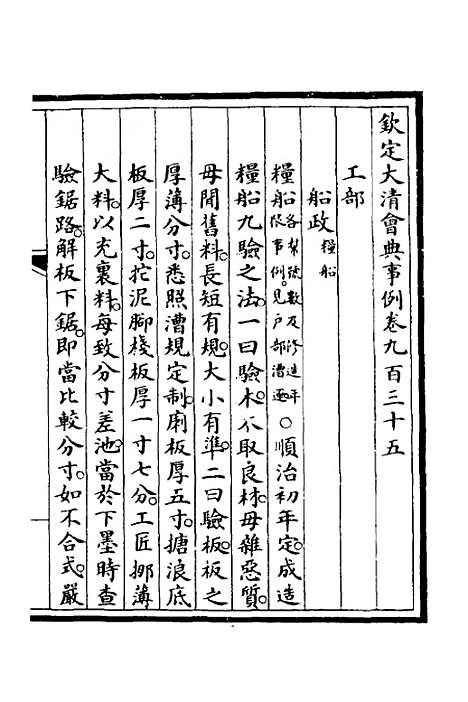 欽定大清會典事例卷九百三十五
工部
船政糧船
糧船各幫號數及修造年限事例見戶部漕運○順治初年定成造
糧船九驗之法一曰驗木木取良材毋雜惡質
毋間舊料長短有規大小有準二曰驗板板之
厚薄分寸悉照漕規定制廂板厚五寸搪浪底
板厚二寸拕泥腳棧板厚一寸七分工匠挪薄
大料以充裏料每致分寸差池當於下墨時查
驗鋸路解板下鋸即當比較分寸如不合式嚴